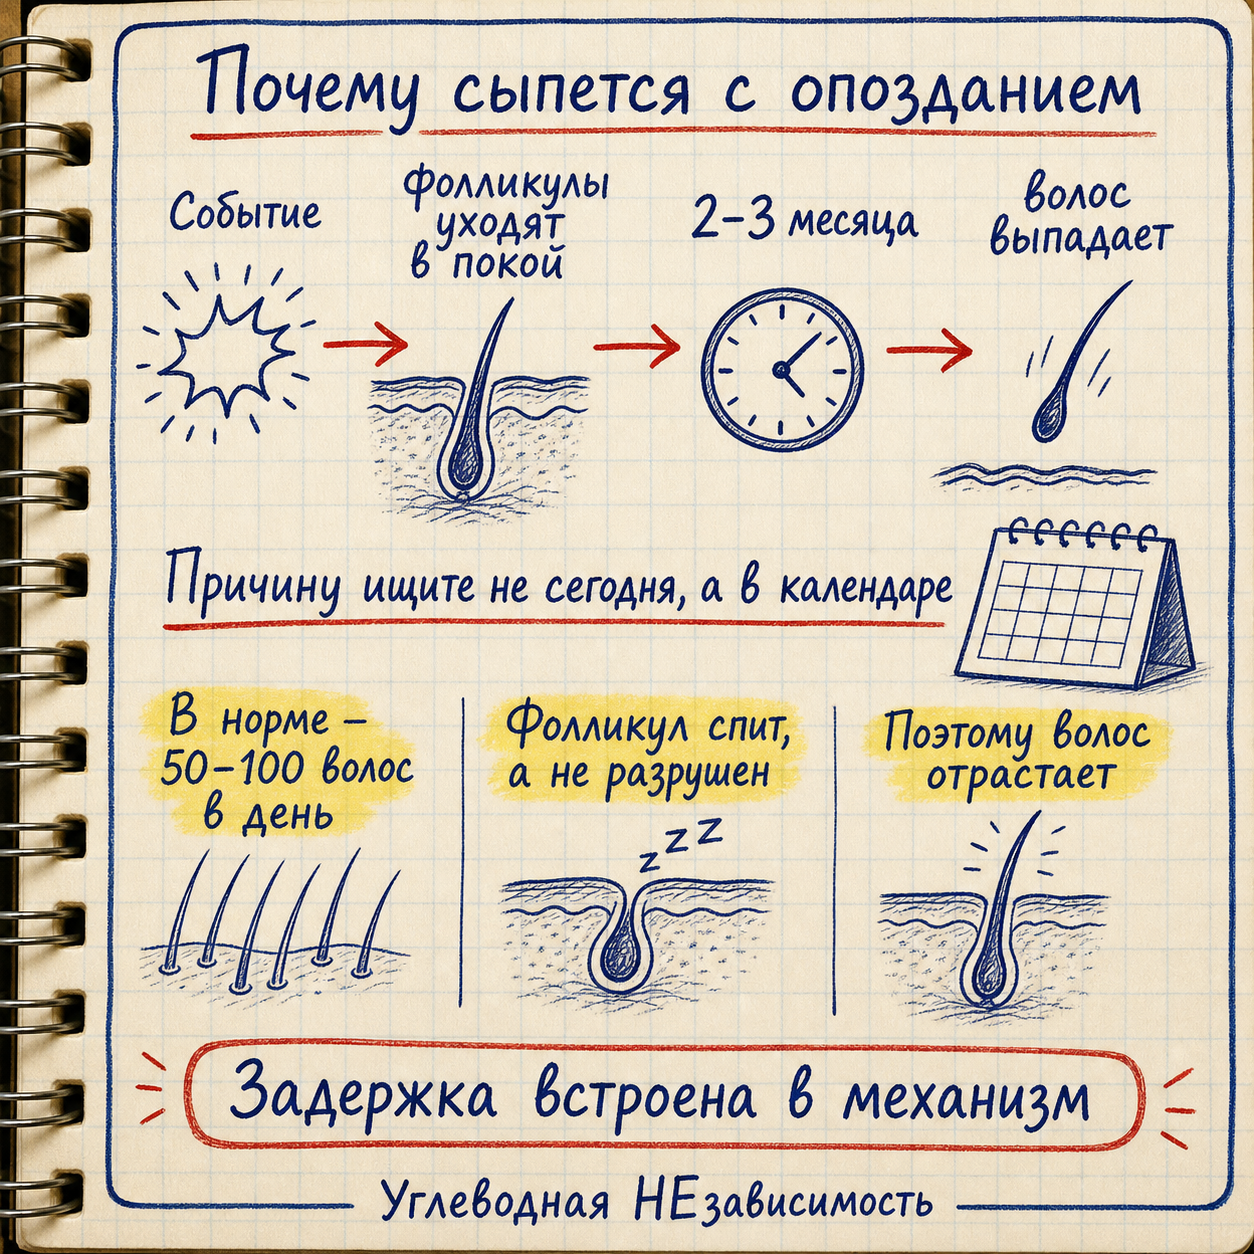 Почему сыпется с опозданием
Событие
фолликулы
уходят
в покой
2–3 месяца
волос
выпадает
Причину ищите не сегодня, а в календаре
В норме –
50–100 волос
в день
Фолликул спит,
а не разрушен
z z z
Поэтому волос
отрастает
Задержка встроена в механизм
Углеводная НЕзависимость